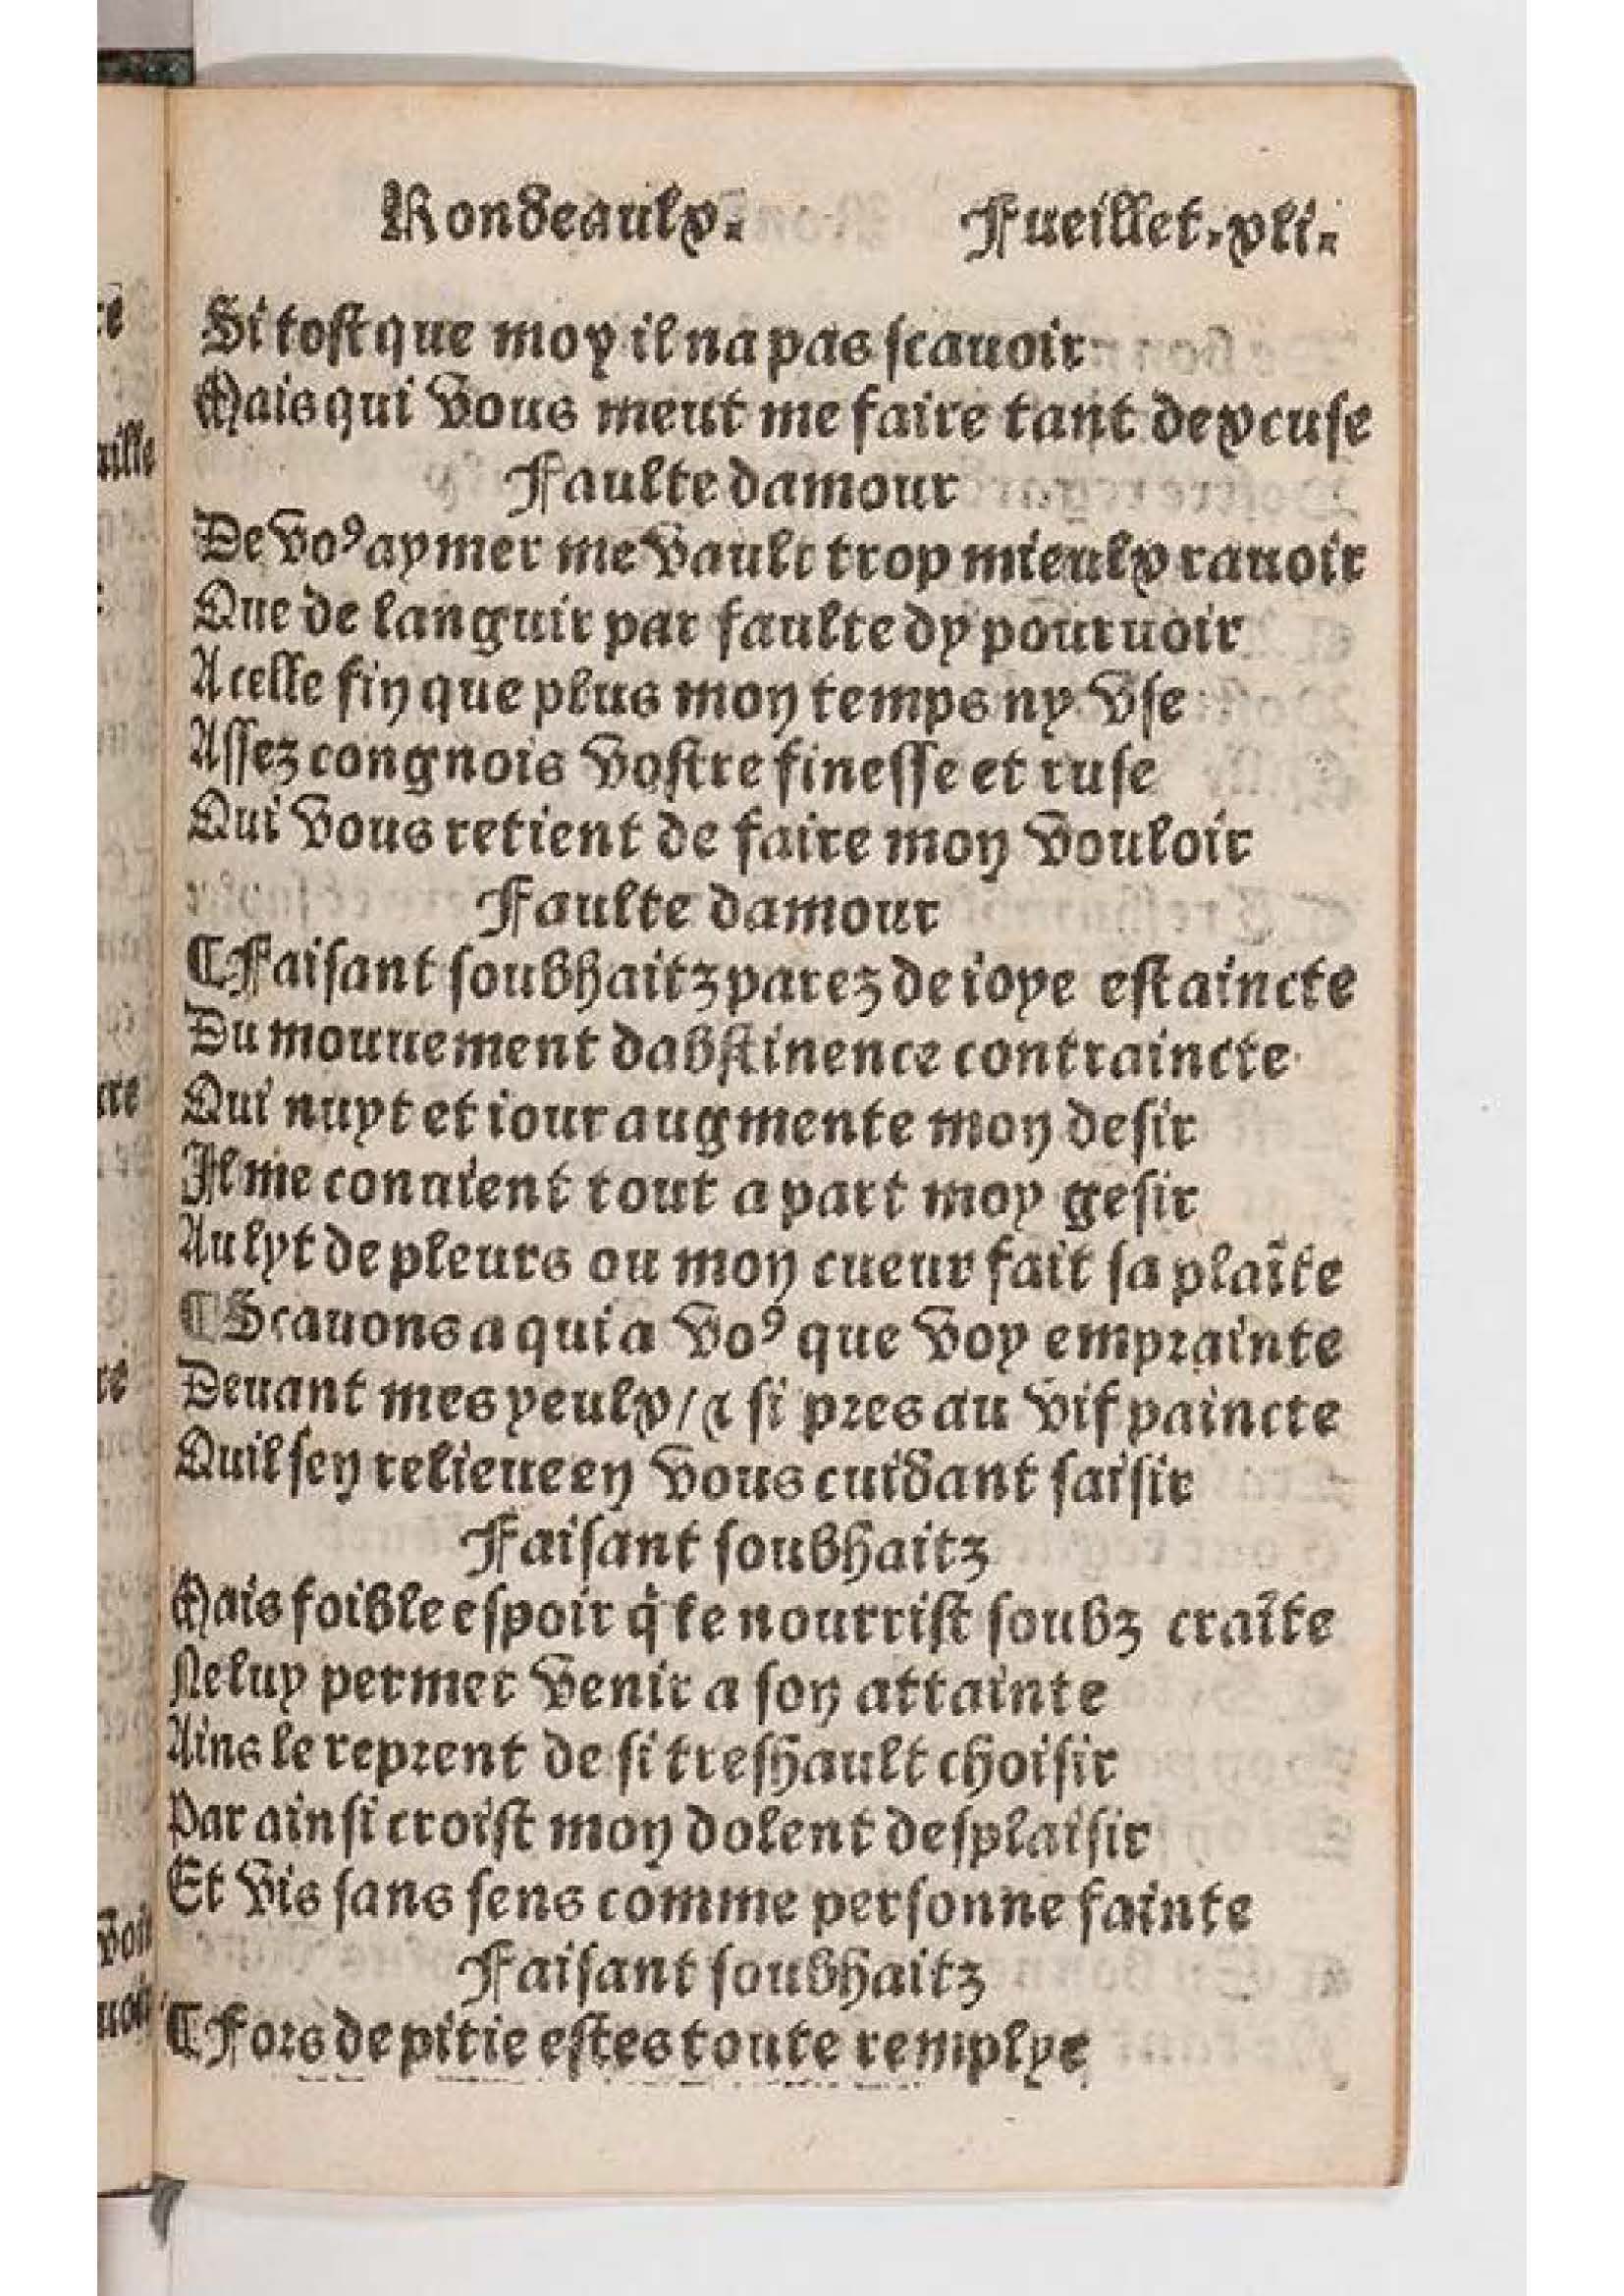 Rondeaulx. Fueillet. xli.
Si tost que moy il na pas scauoir
Mais qui vous meut me faire tant dexcuse
Faulte damour
De voꝰ aymer me vault trop mieulx rauoir
Que de languir par faulte dy pouruoir
A celle fin que plus mon temps ny vse
Assez congnois vostre finesse et ruse
Qui vous retient de faire mon vouloir
Faulte damour
¶ Faisant soubhaitz parez de ioye estaincte
Du mouuement dabstinence contraincte
Qui nuyt et iour augmente mon desir
Il me conuient tout a part moy gesir
Au lyt de pleurs ou mon cueur fait sa plaĩte
¶ Scauons a qui a voꝰ que voy emprainte
Deuant mes yeulx / ⁊ si pres au vif paincte
Quil sen relieue en vous cuidant saisir
Faisant soubhaitz
Mais foible espoir q̃ le nourrist soubz craĩte
Ne luy permet venir a son attainte
Ains le reprent de si treshault choisir
Par ainsi croist mon dolent desplaisir
Et vis sans sens comme personne fainte
Faisant soubhaitz
¶ Fors de pitie estes toute remplye